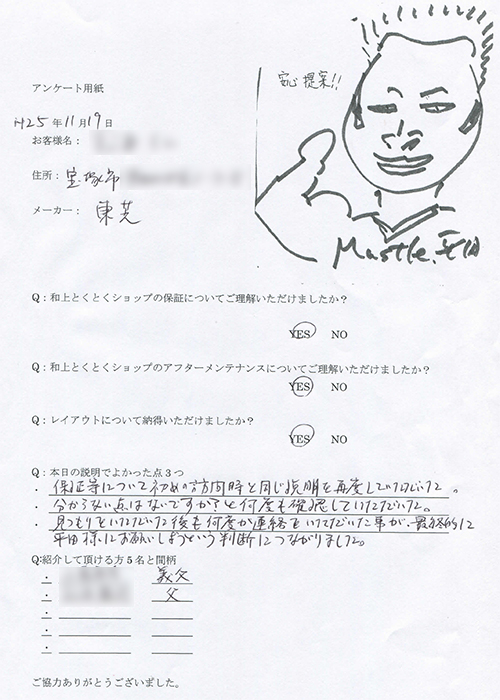 安心提案!!
アンケート用紙
H25年11月19日
お客様名：
住所：宝塚市
メーカー：東芝
Mustle.平田
Q：和上とくとくショップの保証についてご理解いただけましたか？
YES NO
Q：和上とくとくショップのアフターメンテナンスについてご理解いただけましたか？
YES NO
Q：レイアウトについて納得いただけましたか？
YES NO
Q：本日の説明でよかった点3つ
・保証等について初めの訪問時と同じ説明を再度していただいた。
・分からない点はないですか？と何度も確認していただいた。
・見つもりをいただいた後も何度か連絡をいただいた事が、最終的に
平田様にお願いしようという判断につながりました。
Q:紹介して頂ける方5名と間柄
・ 義父
・ 父
・
・
・
ご協力ありがとうございました。